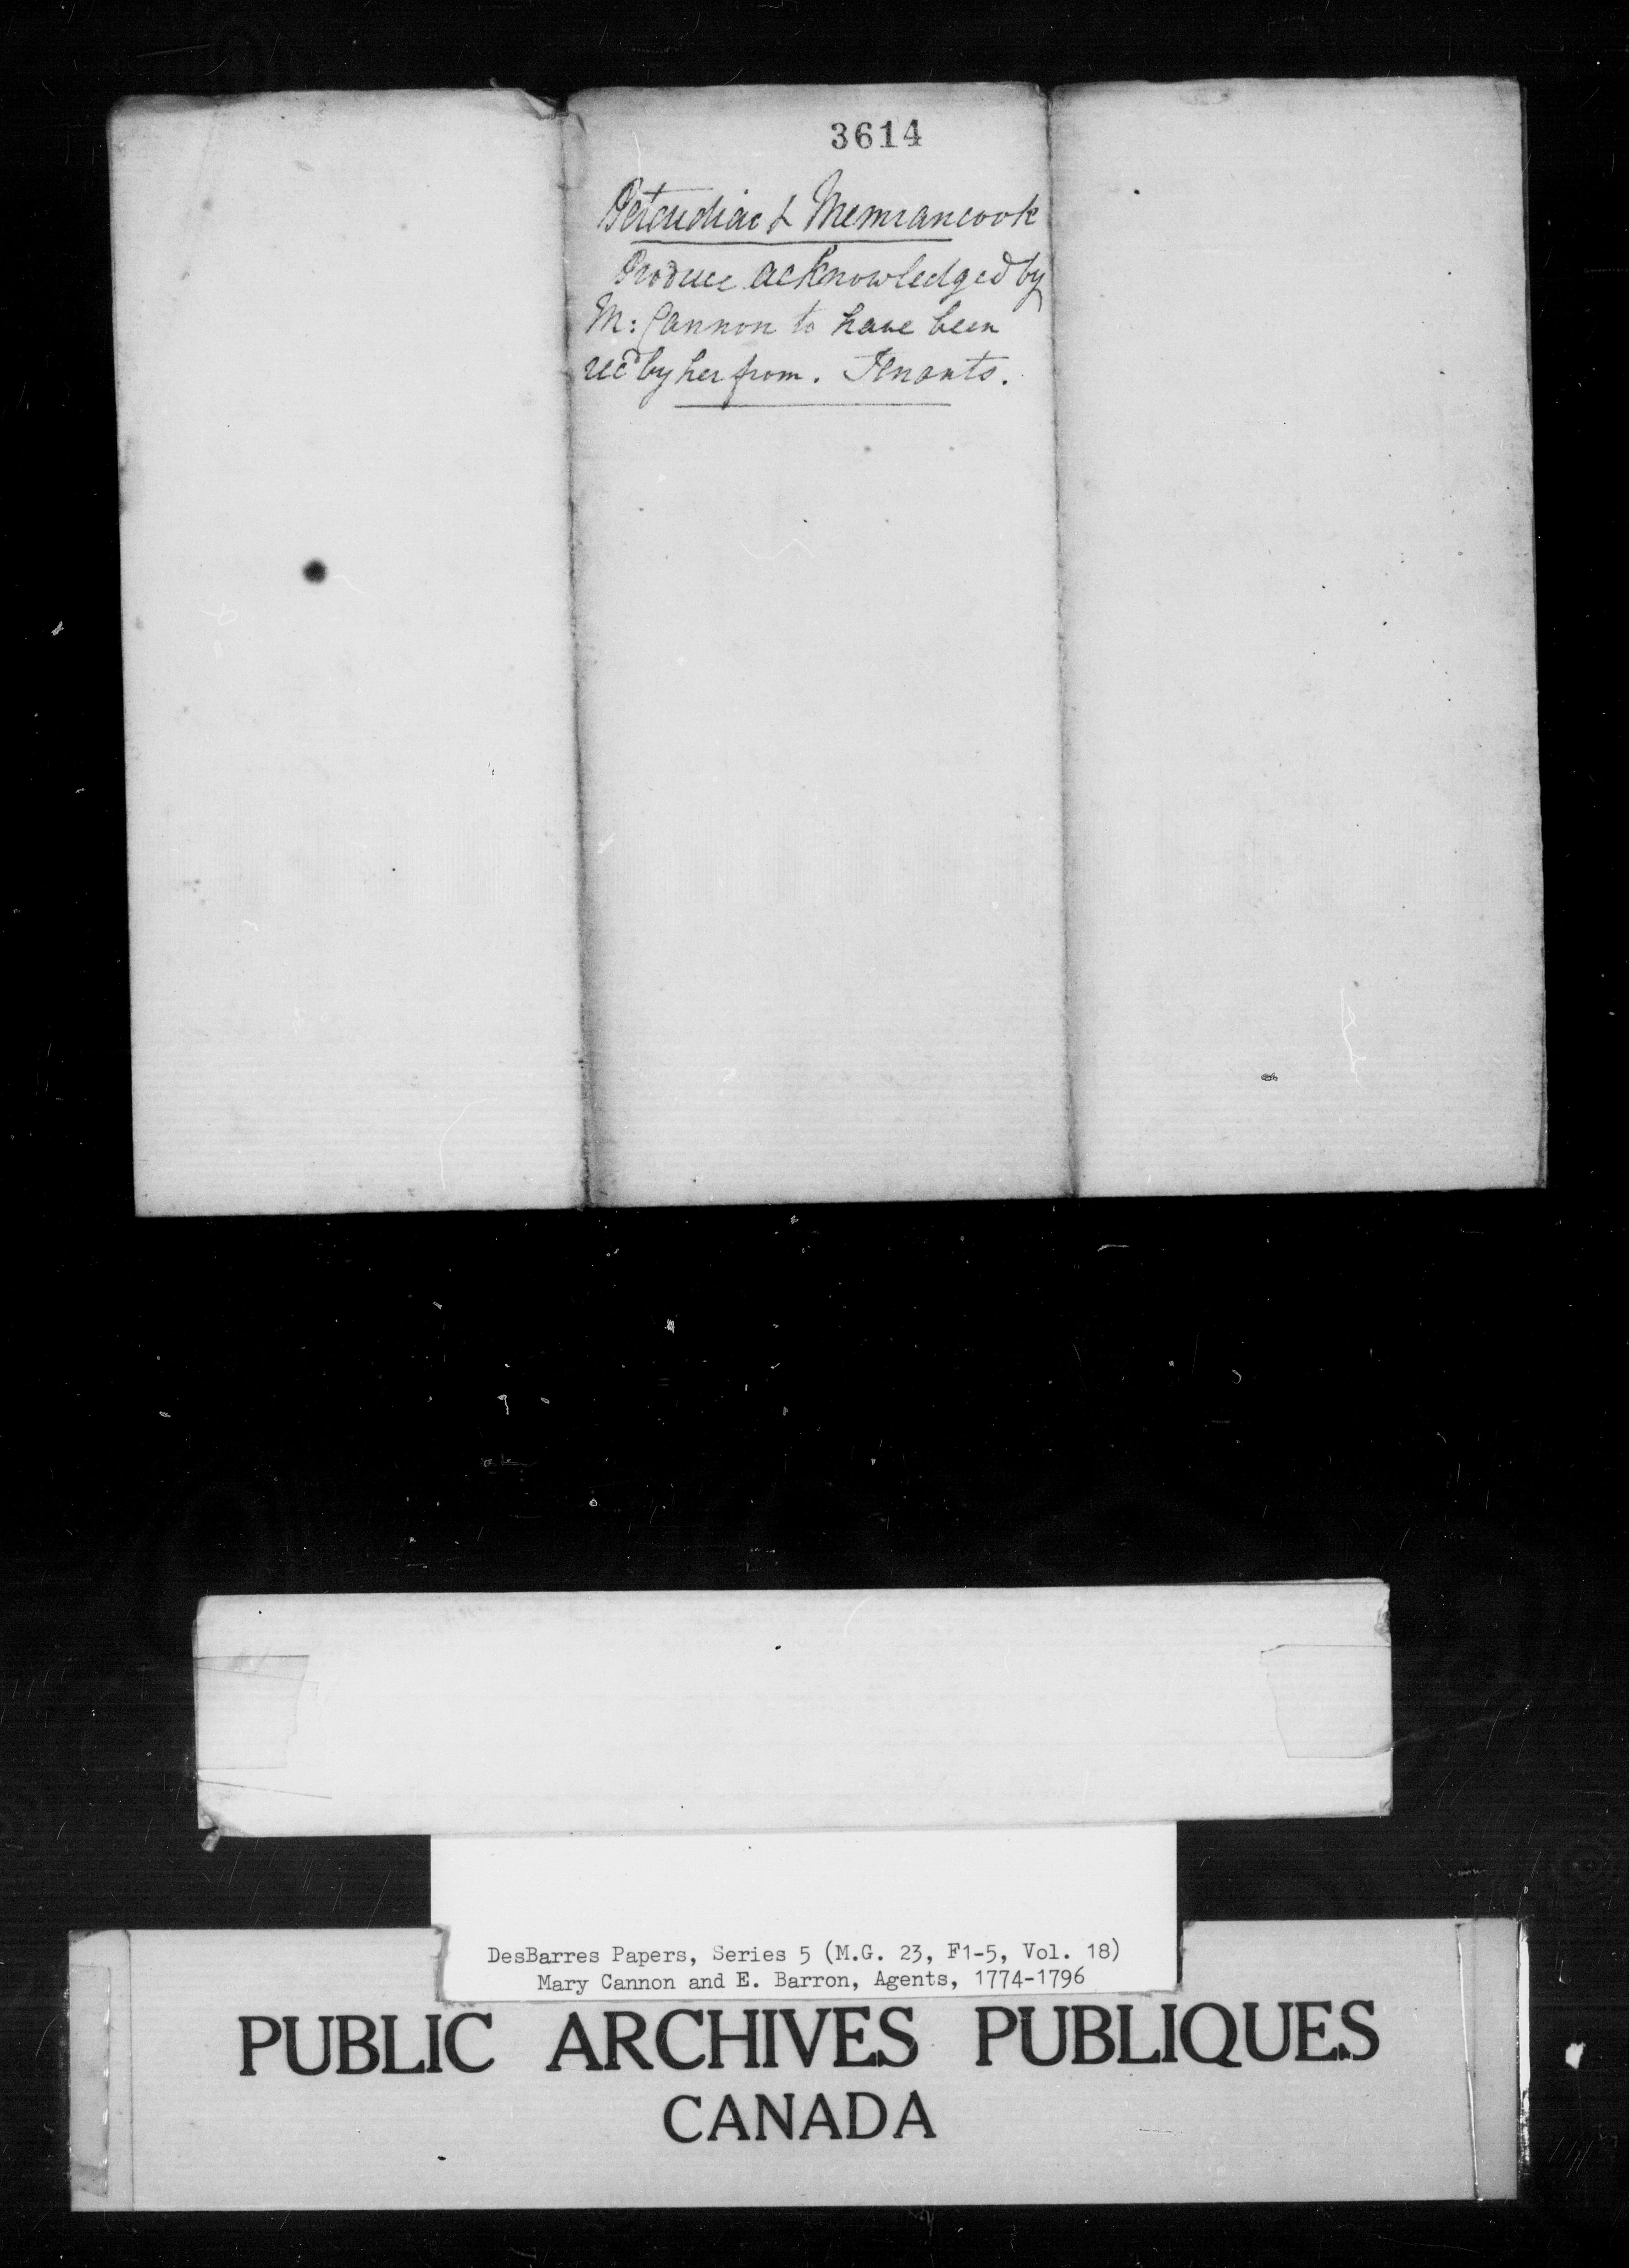 3614
Petcudiac & Memrancook
Produce acknowledged by
M: Cannon to have been
recd by her from. Tenants.
DesBarres Papers, Series 5 (M.G. 23, F1-5, Vol. 18)
Mary Cannon and E. Barron, Agents, 1774-1796
PUBLIC ARCHIVES PUBLIQUES
CANADA